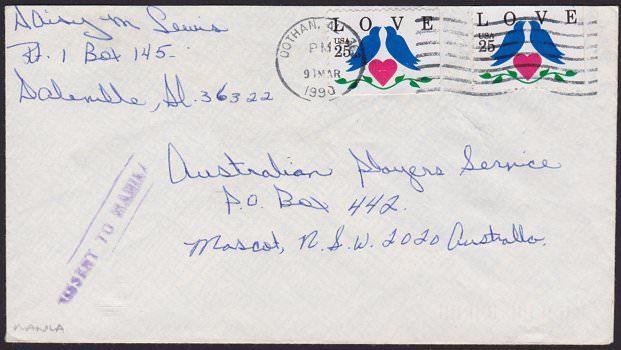 Daisy M Lewis
Rt. 1 Box 145
Daleville, Al. 36322
DOTHAN, AL
PM
MAR
1990
LOVE
USA
25
LOVE
USA
25
Australian Players Service
P.O. Box 442.
Mascot, N.S.W. 2020 Australia.
MISSENT TO MANILA
MANILA